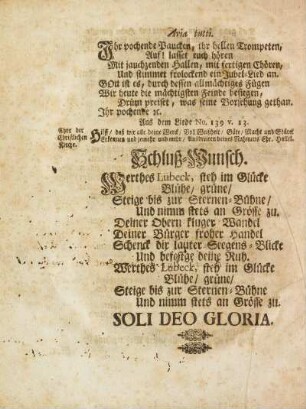 Aria tutti.
Ihr pochende Paucken, ihr hellen Trompeten,
Auf! lasset euch hören
Mit jauchzenden Hallen, mit fertigen Chören,
Und stimmet frolockend ein Jubel-Lied an.
GOtt ist es, durch dessen allmächtiges Fügen
Wir heute die mächtigsten Feinde besiegen,
Drüm preiset, was seine Vorsehung gethan.
Ihr pochende ɾc.
Aus dem Liede No. 139 v. 13.
Chor der
Christlichen
Kirche.
Hilff, daß wir alle deine Werck, Voll Weißheit, Güte, Macht und Stärck
Erkennen und je mehr und mehr, Ausbreiten deines Nahmens Ehr. Hallel.
Schluß-Wunsch.
Werthes Lübeck, steh im Glücke
Blühe, grüne,
Steige bis zur Sternen-Bühne,
Und nimm stets an Grösse zu.
Deiner Obern kluger Wandel
Deiner Bürger froher Handel
Schenck dir lauter Seegens-Blicke
Und befestge deine Ruh.
Werthes Lübeck, steh im Glücke
Blühe, grüne,
Steige bis zur Sternen-Bühne
Und nimm stets an Grösse zu.
SOLI DEO GLORIA.